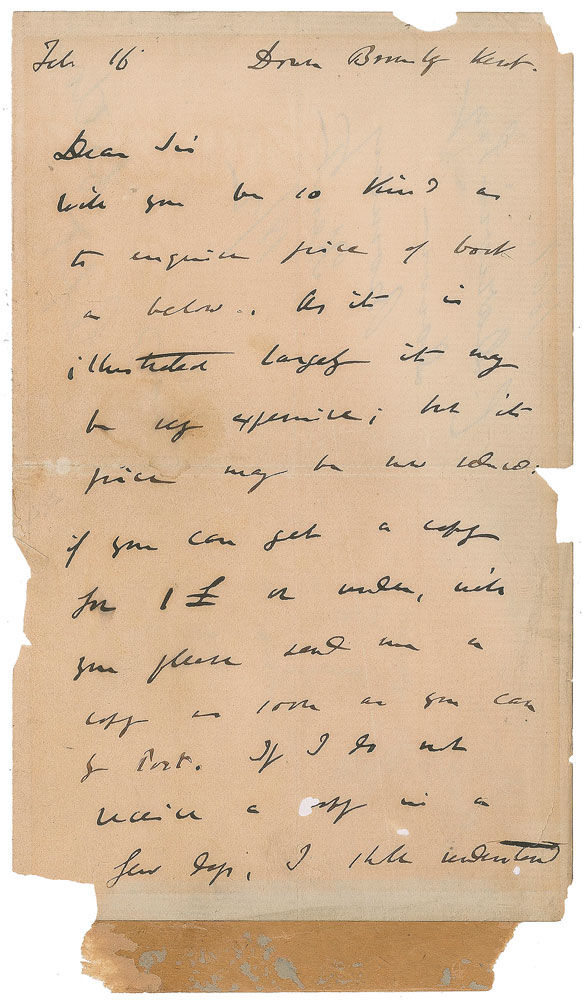 Feb 16 Down Bromley Kent.
Dear Sir
Will you be so kind as
to enquire price of book
as below. As it is
illustrated largely it may
be very expensive; but its
price may be now reduced:
if you can get a copy
for 1 £ or under, will
you please send me a
copy as soon as you can
by Post. If I do not
receive a copy in a
few days, I shall understand